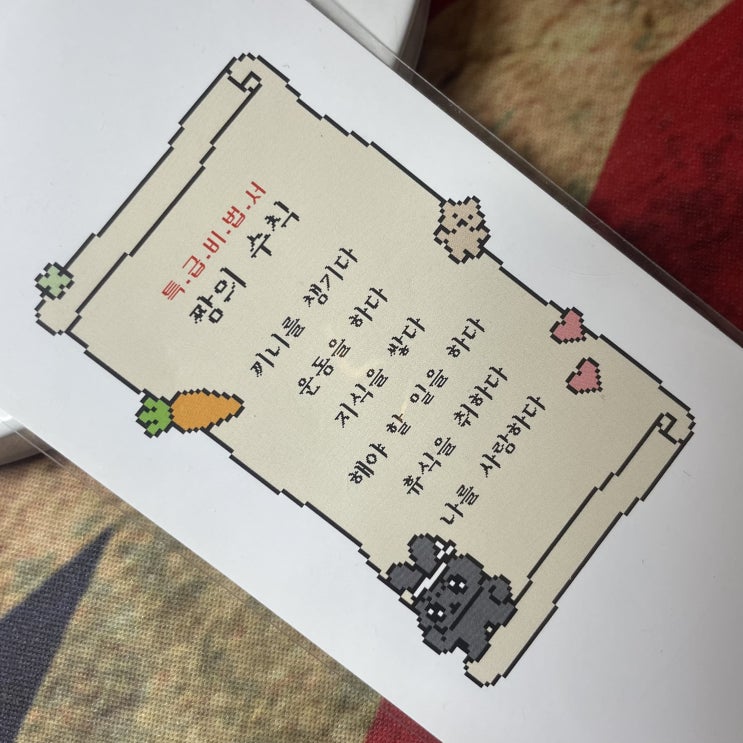 특-급-비-법-서
짱의 수칙
끼니를 챙기다
운동을 하다
지식을 쌓다
해야 할 일을 하다
휴식을 취하다
나를 사랑하다